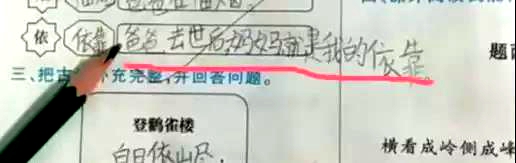 依 依靠 爸爸去世后,妈妈就是我的依靠。
三、把古 补充完整,并回答问题。
登鹳雀楼
白日依山尽,
横看成岭侧成峰